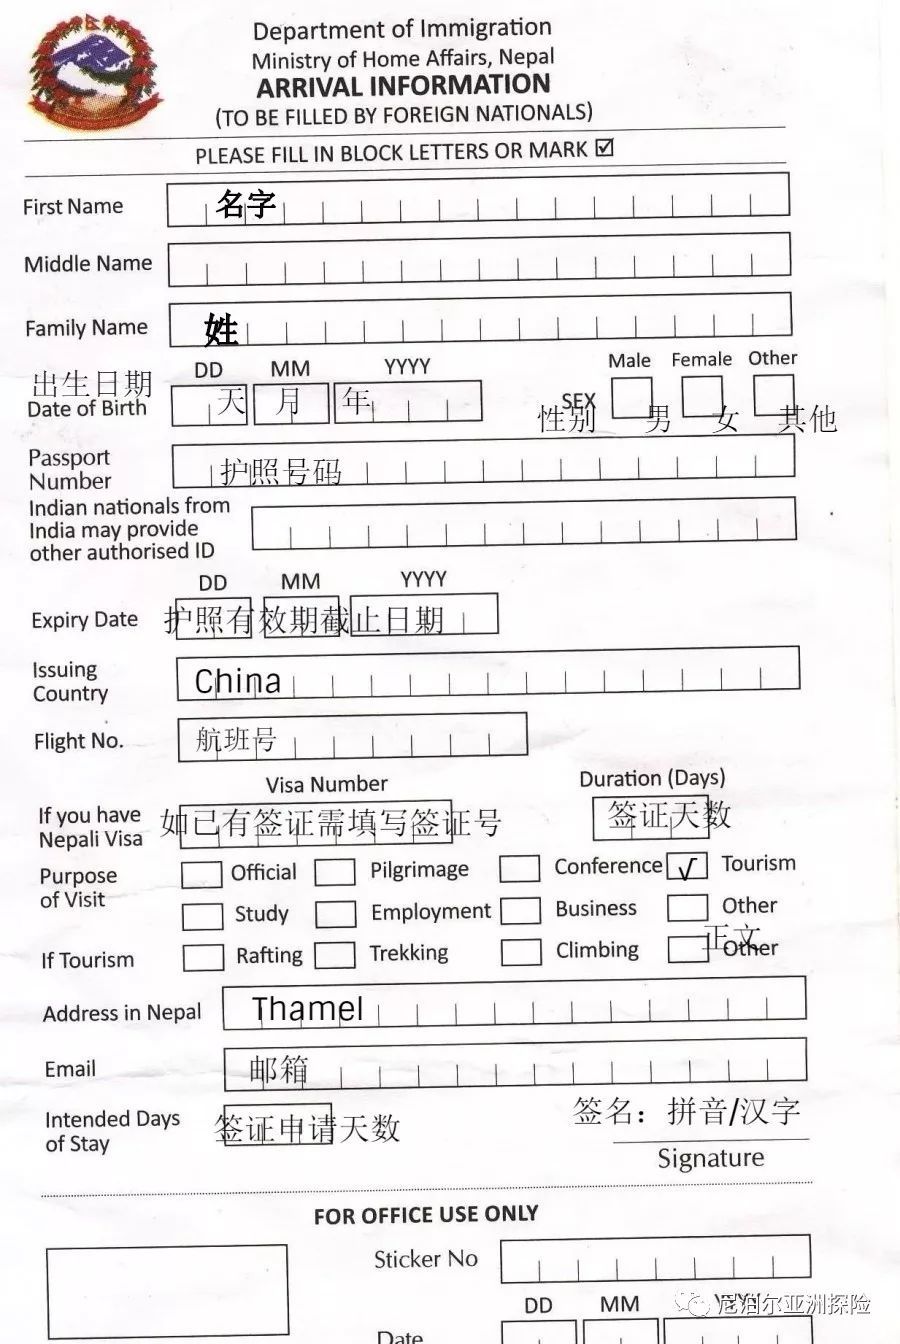 Department of Immigration
Ministry of Home Affairs, Nepal
ARRIVAL INFORMATION
(TO BE FILLED BY FOREIGN NATIONALS)
PLEASE FILL IN BLOCK LETTERS OR MARK ☑
First Name 名字
Middle Name
Family Name 姓
DD MM YYYY Male Female Other
出生日期
Date of Birth 天 月 年 SEX
性别 男 女 其他
Passport
Number 护照号码
Indian nationals from
India may provide
other authorised ID
DD MM YYYY
Expiry Date 护照有效期截止日期
Issuing
Country China
Flight No. 航班号
Visa Number Duration (Days)
If you have
Nepali Visa 如已有签证需填写签证号 签证天数
Purpose
of Visit
Official Pilgrimage Conference √ Tourism
Study Employment Business Other
正文
If Tourism Rafting Trekking Climbing Other
Address in Nepal Thamel
Email 邮箱
Intended Days
of Stay 签证申请天数
签名：拼音/汉字
Signature
FOR OFFICE USE ONLY
Sticker No
DD MM YYYY
Date
尼泊尔亚洲探险